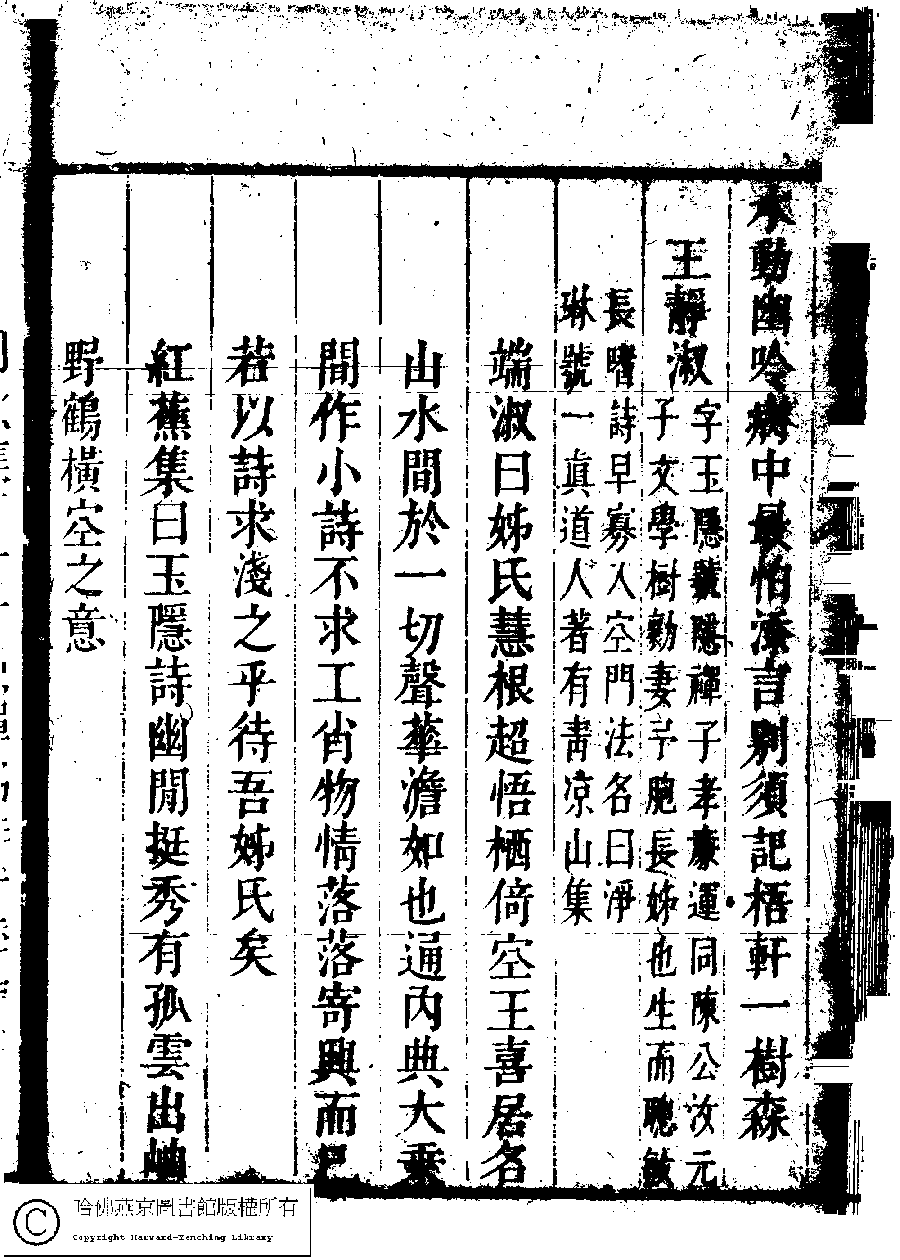 動幽吟病中最怕添言別須記梧軒一樹森
王靜淑
字玉隱號隱禪子孝廉運同陳公汝元
子文學樹勷妻予胞長姊也生而聰敏
長嗜詩早寡入空門法名曰淨
琳號一真道人著有青凉山集
端淑曰姊氏慧根超悟栖倚空王喜居名
山水間於一切聲華澹如也通內典大乘
間作小詩不求工肖物情落落寄興而已
若以詩求淺之乎待吾姊氏矣
紅蕉集曰玉隱詩幽閒挺秀有孤雲出岫
野鶴橫空之意
哈佛燕京圖書館版權所有
Copyright Harvard-Yenching Library